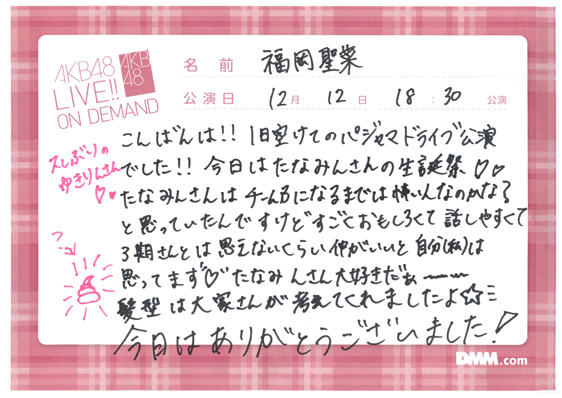 AKB48
LIVE!!
ON DEMAND
AKB
48
名前 福岡聖菜
公演日 12月 12日 18:30 公演
久しぶりの
ゆきりんさん♡♡
こんばんは!! 1日空けてのパジャマドライブ公演
でした!! 今日はたなみんさんの生誕祭♡♡
たなみんさんはチームBになるまでは怖い人なのかなぁ
と思っていたんですけどすごくおもしろくて話しやすくて
3期さんとは思えないくらい仲がいいと自分(私)は
思ってます♡たなみんさん大好きだぉ〜〜
髪型は大家さんが考えてくれましたよ☆ミ
今日はありがとうございました!
?
DMM.com